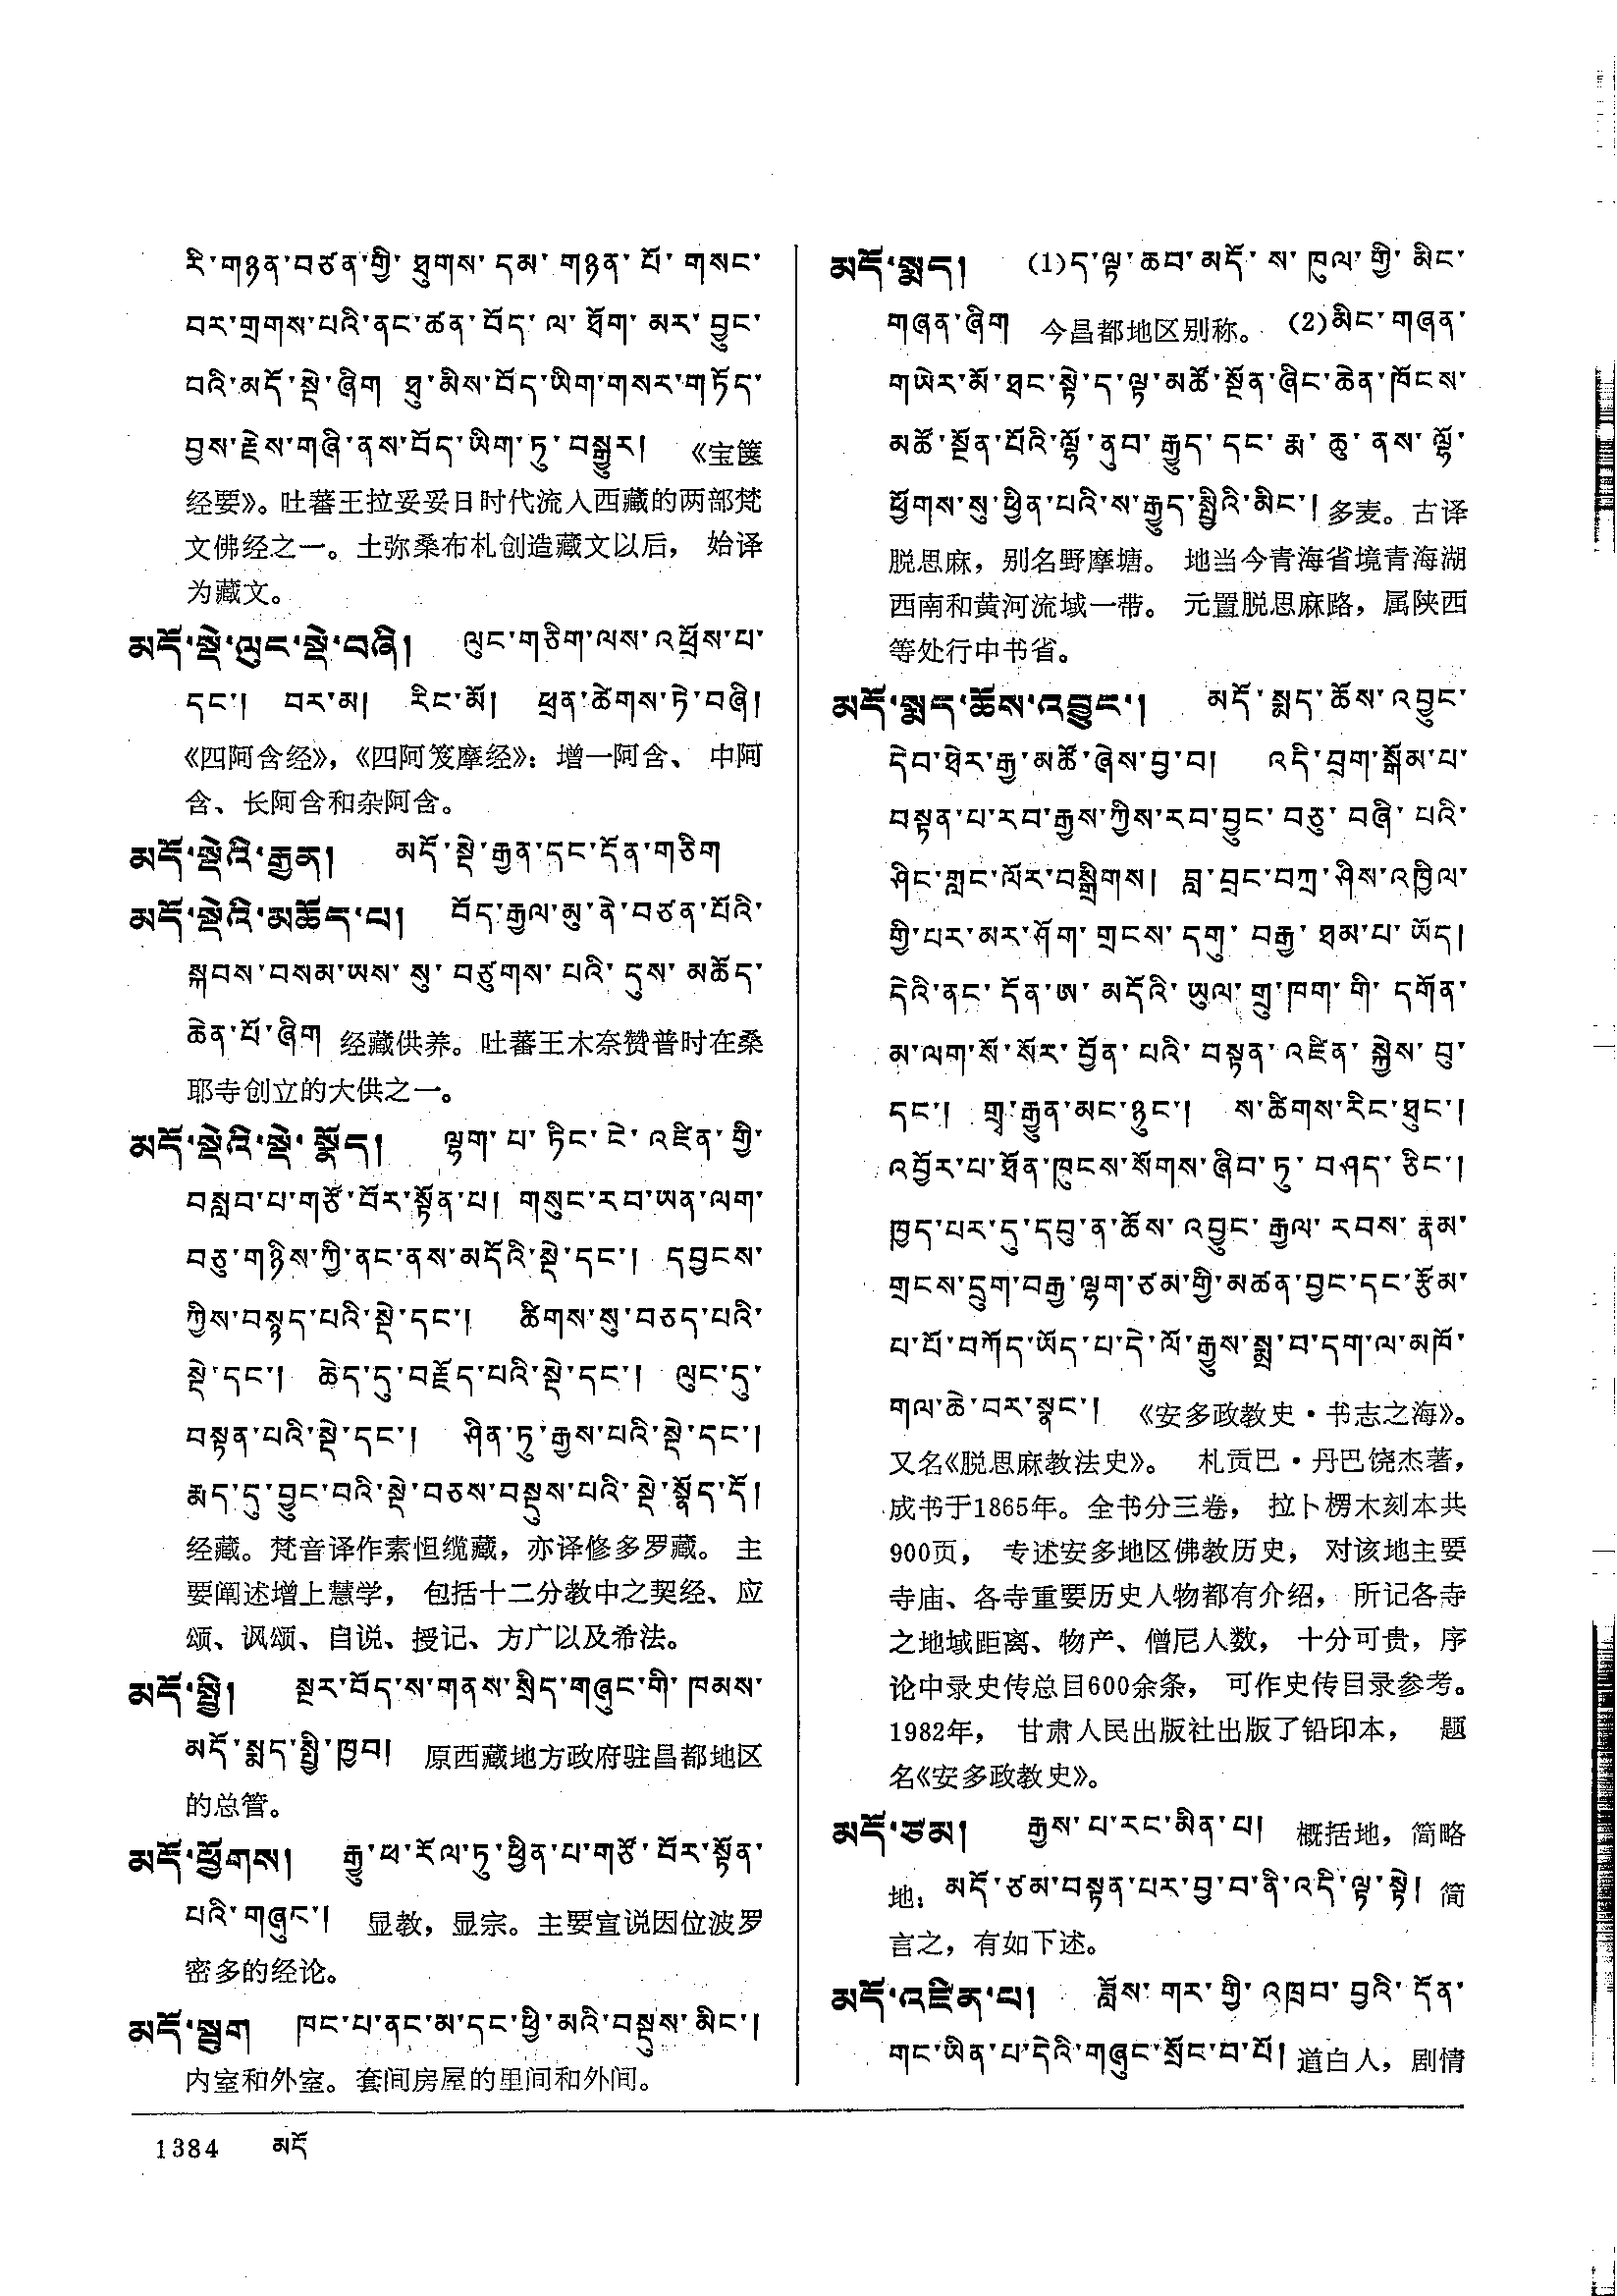 རི་གཉན་བཙན་གྱི་ ཐུགས་ དམ་ གཉན་ པོ་ གསང་
བར་གྲགས་པའི་ནང་ཚན་བོད་ ལ་ ཐོག་ མར་ བྱུང་
བའི་མདོ་སྡེ་ཞིག ཐུ་མིས་བོད་ཡིག་གསར་གཏོད་
བྱས་རྗེས་གཞི་ནས་བོད་ཡིག་ཏུ་བསྒྱུར། 《宝箧
经要》。吐蕃王拉妥妥日时代流入西藏的两部梵
文佛经之一。土弥桑布札创造藏文以后， 始译
为藏文。
མདོ་སྡེ་ལུང་སྡེ་བཞི། ལུང་གཅིག་ལས་འཕྲོས་པ་
དང༌། བར་མ། རིང་མོ། ཕྲན་ཚེགས་ཏེ་བཞི།
《四阿含经》，《四阿笈摩经》：增一阿含、 中阿
含、长阿含和杂阿含。
མདོ་སྡེའི་རྒྱན། མདོ་སྡེ་རྒྱན་དང་དོན་གཅིག
མདོ་སྡེའི་མཆོད་པ། བོད་རྒྱལ་མུ་ནེ་བཙན་པོའི་
སྐབས་བསམ་ཡས་ སུ་ བཙུགས་ པའི་ དུས་ མཆོད་
ཆེན་པོ་ཞིག 经藏供养。吐蕃王木奈赞普时在桑
耶寺创立的大供之一。
མདོ་སྡེའི་སྡེ་སྣོད། ལྷག་ པ་ ཏིང་ ངེ་ འཛིན་ གྱི་
བསླབ་པ་གཙོ་བོར་སྟོན་པ། གསུང་རབ་ཡན་ལག་
བཅུ་གཉིས་ཀྱི་ནང་ནས་མདོའི་སྡེ་དང༌། དབྱངས་
ཀྱིས་བསྙད་པའི་སྡེ་དང༌། ཚིགས་སུ་བཅད་པའི་
སྡེ་དང༌། ཆེད་དུ་བརྗོད་པའི་སྡེ་དང༌། ལུང་དུ་
བསྟན་པའི་སྡེ་དང༌། ཤིན་ཏུ་རྒྱས་པའི་སྡེ་དང༌།
རྨད་དུ་བྱུང་བའི་སྡེ་བཅས་བསྡུས་པའི་སྡེ་སྣོད་དོ།
经藏。梵音译作素怛缆藏，亦译修多罗藏。 主
要阐述增上慧学， 包括十二分教中之契经、应
颂、讽颂、自说、授记、方广以及希法。
མདོ་སྤྱི། སྔར་བོད་ས་གནས་སྲིད་གཞུང་གི་ ཁམས་
མདོ་སྨད་སྤྱི་ཁྱབ། 原西藏地方政府驻昌都地区
的总管。
མདོ་ཕྱོགས། རྒྱུ་ཕ་རོལ་ཏུ་ཕྱིན་པ་གཙོ་བོར་སྟོན་
པའི་གཞུང༌། 显教，显宗。主要宣说因位波罗
密多的经论。
མདོ་སྦུག ཁང་པ་ནང་མ་དང་ཕྱི་མའི་བསྡུས་མིང༌།
内室和外室。套间房屋的里间和外间。
མདོ་སྨད། (1)ད་ལྟ་ཆབ་མདོ་ ས་ ཁུལ་ གྱི་ མིང་
གཞན་ཞིག 今昌都地区别称。 (2)མིང་གཞན་
གཡེར་མོ་ཐང་སྟེ་ད་ལྟ་མཚོ་སྔོན་ཞིང་ཆེན་ཁོངས་
མཚོ་སྔོན་པོའི་ལྷོ་ནུབ་རྒྱུད་ དང་ རྨ་ ཆུ་ ནས་ ལྷོ་
ཕྱོགས་སུ་ཕྱིན་པའི་ས་རྒྱུད་སྤྱིའི་མིང༌། 多麦。古译
脱思麻，别名野摩塘。 地当今青海省境青海湖
西南和黄河流域一带。 元置脱思麻路，属陕西
等处行中书省。
མདོ་སྨད་ཆོས་འབྱུང༌། མདོ་སྨད་ཆོས་འབྱུང་
དེབ་ཐེར་རྒྱ་མཚོ་ཞེས་བྱ་བ། འདི་བྲག་སྒོམ་པ་
བསྟན་པ་རབ་རྒྱས་ཀྱིས་རབ་བྱུང་ བཅུ་ བཞི་ པའི་
ཤིང་གླང་ལོར་བསྒྲིགས། བླ་བྲང་བཀྲ་ཤིས་འཁྱིལ་
གྱི་པར་མར་ཤོག་གྲངས་ དགུ་ བརྒྱ་ ཐམ་པ་ ཡོད།
དེའི་ནང་ དོན་ཨ་ མདོའི་ ཡུལ་ གྲུ་ཁག་ གི་ དགོན་
མ་ལག་སོ་སོར་ བྱོན་ པའི་ བསྟན་འཛིན་ སྐྱེས་ བུ་
དང༌། གྲྭ་རྒྱུན་མང་ཉུང༌། ས་ཚིགས་རིང་ཐུང༌།
འབྱོར་པ་ཐོན་ཁུངས་སོགས་ཞིབ་ཏུ་ བཤད་ ཅིང༌།
ཁྱད་པར་དུ་དབུ་ན་ཆོས་འབྱུང་རྒྱལ་ རབས་ རྣམ་
གྲངས་དྲུག་བརྒྱ་ལྷག་ཙམ་གྱི་མཚན་བྱང་དང་རྩོམ་
པ་པོ་བཀོད་ཡོད་པ་དེ་ལོ་རྒྱུས་སྨྲ་བ་དག་ལ་མཁོ་
གལ་ཆེ་བར་སྣང༌། 《安多政教史·书志之海》。
又名《脱思麻教法史》。 札贡巴·丹巴饶杰著，
成书于1865年。全书分三卷， 拉卜楞木刻本共
900页， 专述安多地区佛教历史， 对该地主要
寺庙、各寺重要历史人物都有介绍， 所记各寺
之地域距离、物产、僧尼人数， 十分可贵，序
论中录史传总目600余条， 可作史传目录参考。
1982年， 甘肃人民出版社出版了铅印本， 题
名《安多政教史》。
མདོ་ཙམ། རྒྱས་པ་རང་མིན་པ། 概括地，简略
地：མདོ་ཙམ་བསྟན་པར་བྱ་བ་ནི་འདི་ལྟ་སྟེ། 简
言之，有如下述。
མདོ་འཛིན་པ། ཟློས་ གར་ གྱི་ འཁྲབ་ བྱའི་ དོན་
གང་ཡིན་པ་དེའི་གཞུང་སྲོང་བ་པོ། 道白人，剧情
1384 མདོ